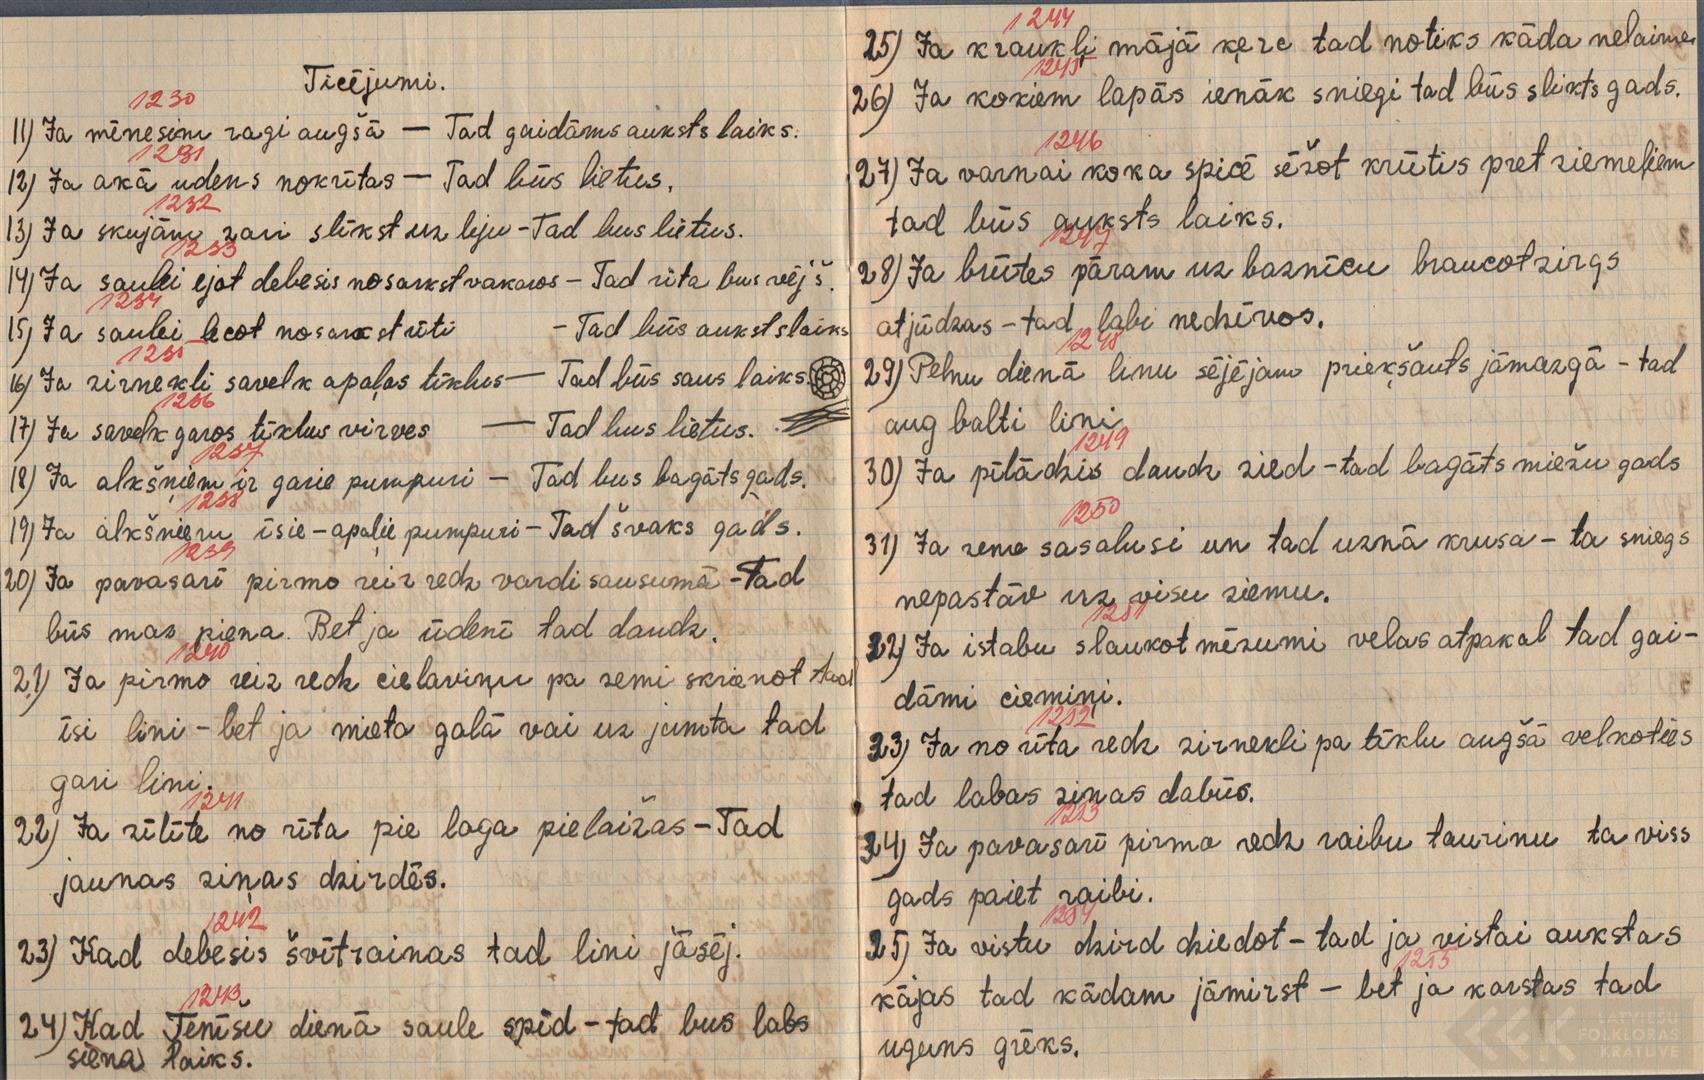 Ticējumi.
1230
11) Ja mēnesim ragi augšā — Tad gaidāms auksts laiks.
1231
12) Ja akā udens nokrītas — Tad būs lietus.
1232
13) Ja skujām zari slīkst uz leju - Tad bus lietus.
1233
14) Ja saulei ejot debesis nosarkst vakaros - Tad rīta bus vējš.
1234
15) Ja saulei lecot nosarkst rīti - Tad būs auksts laiks
1235
16) Ja zirnekli savelk apaļas tīklus — Tad būs saus laiks.
1236
17) Ja savelk garos tīklus virves — Tad bus lietus.
1237
18) Ja alkšņiem ir garie pumpuri — Tad bus bagāts gads.
1238
19) Ja alkšņiem īsie - apaļie pumpuri - Tad švaks gads.
1239
20) Ja pavasarī pirmo reiz redz vardi sausumā - Tad
būs maz piena. Bet ja ūdenī tad daudz.
1240
21) Ja pirmo reiz redz cielaviņu pa zemi skrienot tad
īsi lini - bet ja mieta galā vai uz jumta tad
gari lini.
1241
22) Ja zīlīte no rīta pie loga pielaižas - Tad
jaunas ziņas dzirdēs.
1242
23) Kad debesis švītrainas tad lini jāsēj.
1243
24) Kad Tenīsu dienā saule spīd - tad bus labs
siena laiks.
1244
25) Ja kraukļi mājā ķerc tad notiks kāda nelaime.
1245
26) Ja kokiem lapās ienāk sniegi tad būs slikts gads.
1246
27) Ja varnai koka spicē sēžot krūtis pret ziemeļiem
tad būs auksts laiks.
1247
28) Ja brūtes pāram uz baznīcu braucot zirgs
atjūdzas - tad labi nedzīvos.
1248
29) Pelnu dienā linu sējējam priekšauts jāmazgā - tad
aug balti lini
1249
30) Ja pīlādzis daudz zied - tad bagāts miežu gads
1250
31) Ja zeme sasalusi un tad uznā krusa - ta sniegs
nepastāv uz visu ziemu.
1251
32) Ja istabu slaukot mēzumi velas atpakal tad gai-
dāmi ciemiņi.
1252
33) Ja no rīta redz zirnekli pa tīklu augšā velkoties
tad labas ziņas dabūs.
1253
34) Ja pavasarī pirmo redz raibu taurinu ta viss
gads paiet raibi.
1254
35) Ja vistu dzird dziedot - tad ja vistai aukstas
1255
kājas tad kādam jāmirst - bet ja karstas tad
uguns grēks.
LATVIEŠU
FOLKLORAS
KRĀTUVE